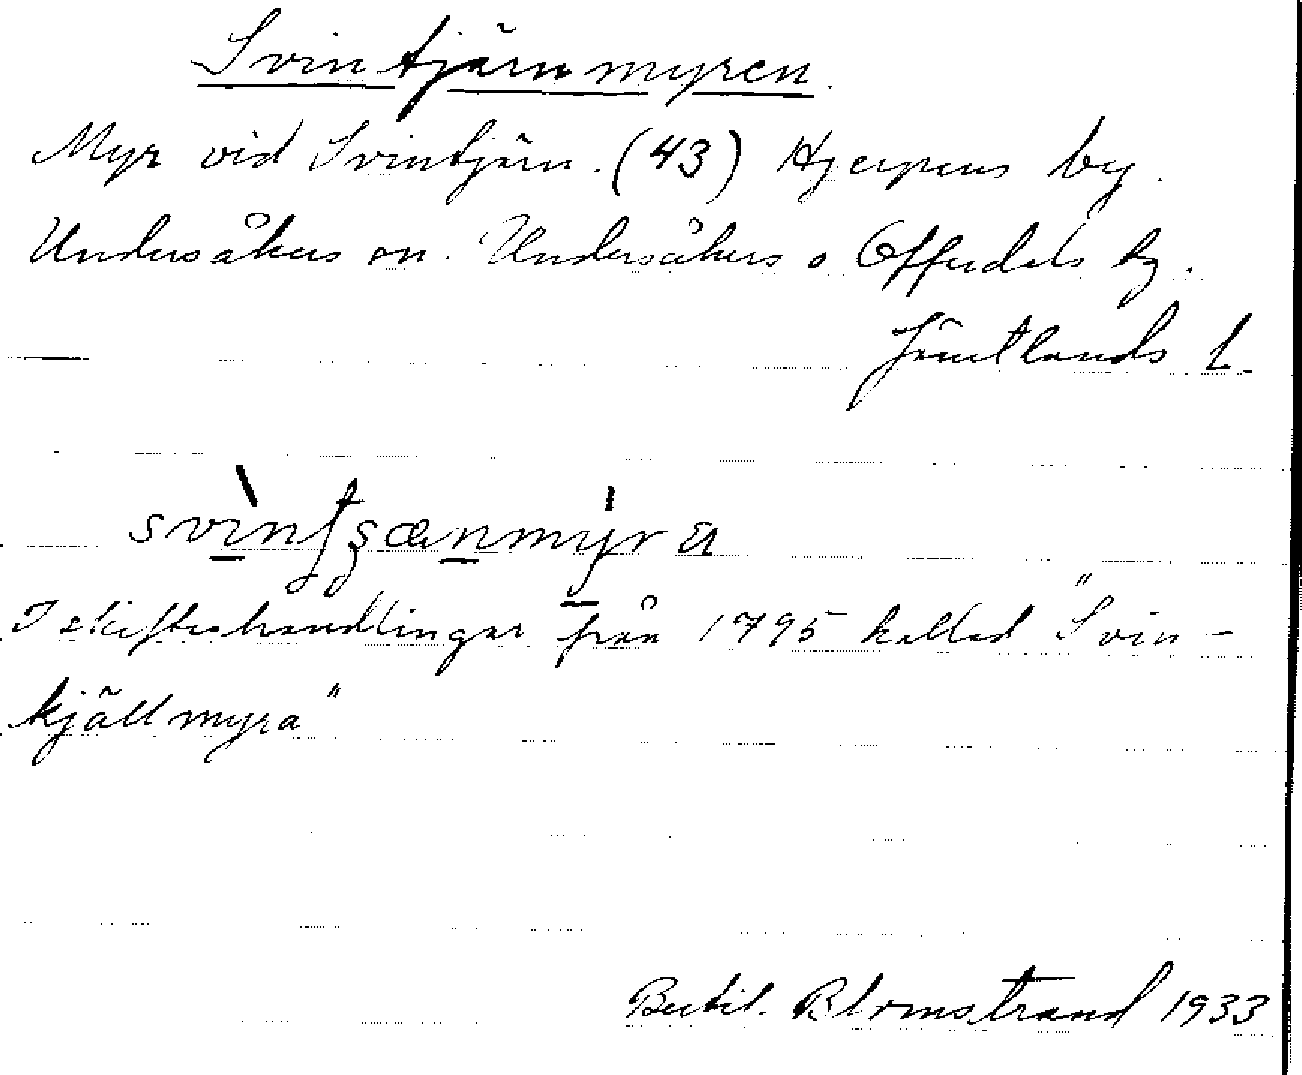 Svintjärnmyren.
Myr vid Svintjärn. (43) Hjerpens by.
Undersåkers sn. Undersåkers o Offerdals tg.
Jämtlands l.
I skifteshandlingar från 1795 kallad "Svin-
kjällmyra"
Bertil. Blomstrand 1933